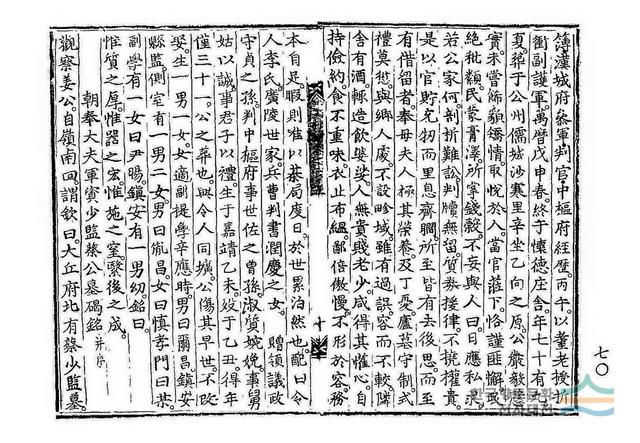 簿漢城府參軍判官中樞府經歷丙午以耋老授折
衝副護軍萬曆戊申春終于懷德庄舍年七十有
夏葬于公州儒城沙寒里辛坐乙向之原公嚴毅
實未嘗飾貌矯情取悅於人當官莅下恪謹匪解
絶秕纇民蒙膏澤所掌錢穀不妄與人曰日應私求
若公家何剖析難訟判牘無留質劵援律不撓權貴
是以官貯充牣而里息齊鬪所至皆有去後思而至
有借留者奉母夫人極其榮養及丁憂廬墓守制式
禮莫愆與鄕人處不設畛域雖有過誤容而不較隣
舍有酒輒造飮婆娑人無貴賤老少咸得其懽心自
持儉約食不重味衣止布縕鄙倍傲慢不形於容務
十
本自是暇則惟以棊局度日於世累泊然也配曰令
人李氏廣陵世家兵曹判書潤慶之女 贈領議政
守貞之孫判中樞府事世佐之曾孫淑質婉娩事舅
姑以誠事君子以禮生于嘉靖乙未歿于乙丑得年
僅三十一公之葬也與令人同壙公傷其早世不改
娶生一男一女女適副提學辛應時男曰爾昌鎭安
縣監側室有一男二女男曰胤昌女曰愼孝門曰
副學有一女曰尹暘鎭安有一男幼銘曰
惟質之厚惟器之宏惟施之窒繄後之成
朝奉大夫軍資少監蔡公墓碣銘 幷序
觀察姜公自嶺南回謂欽曰大丘府北有蔡少監墓
七〇